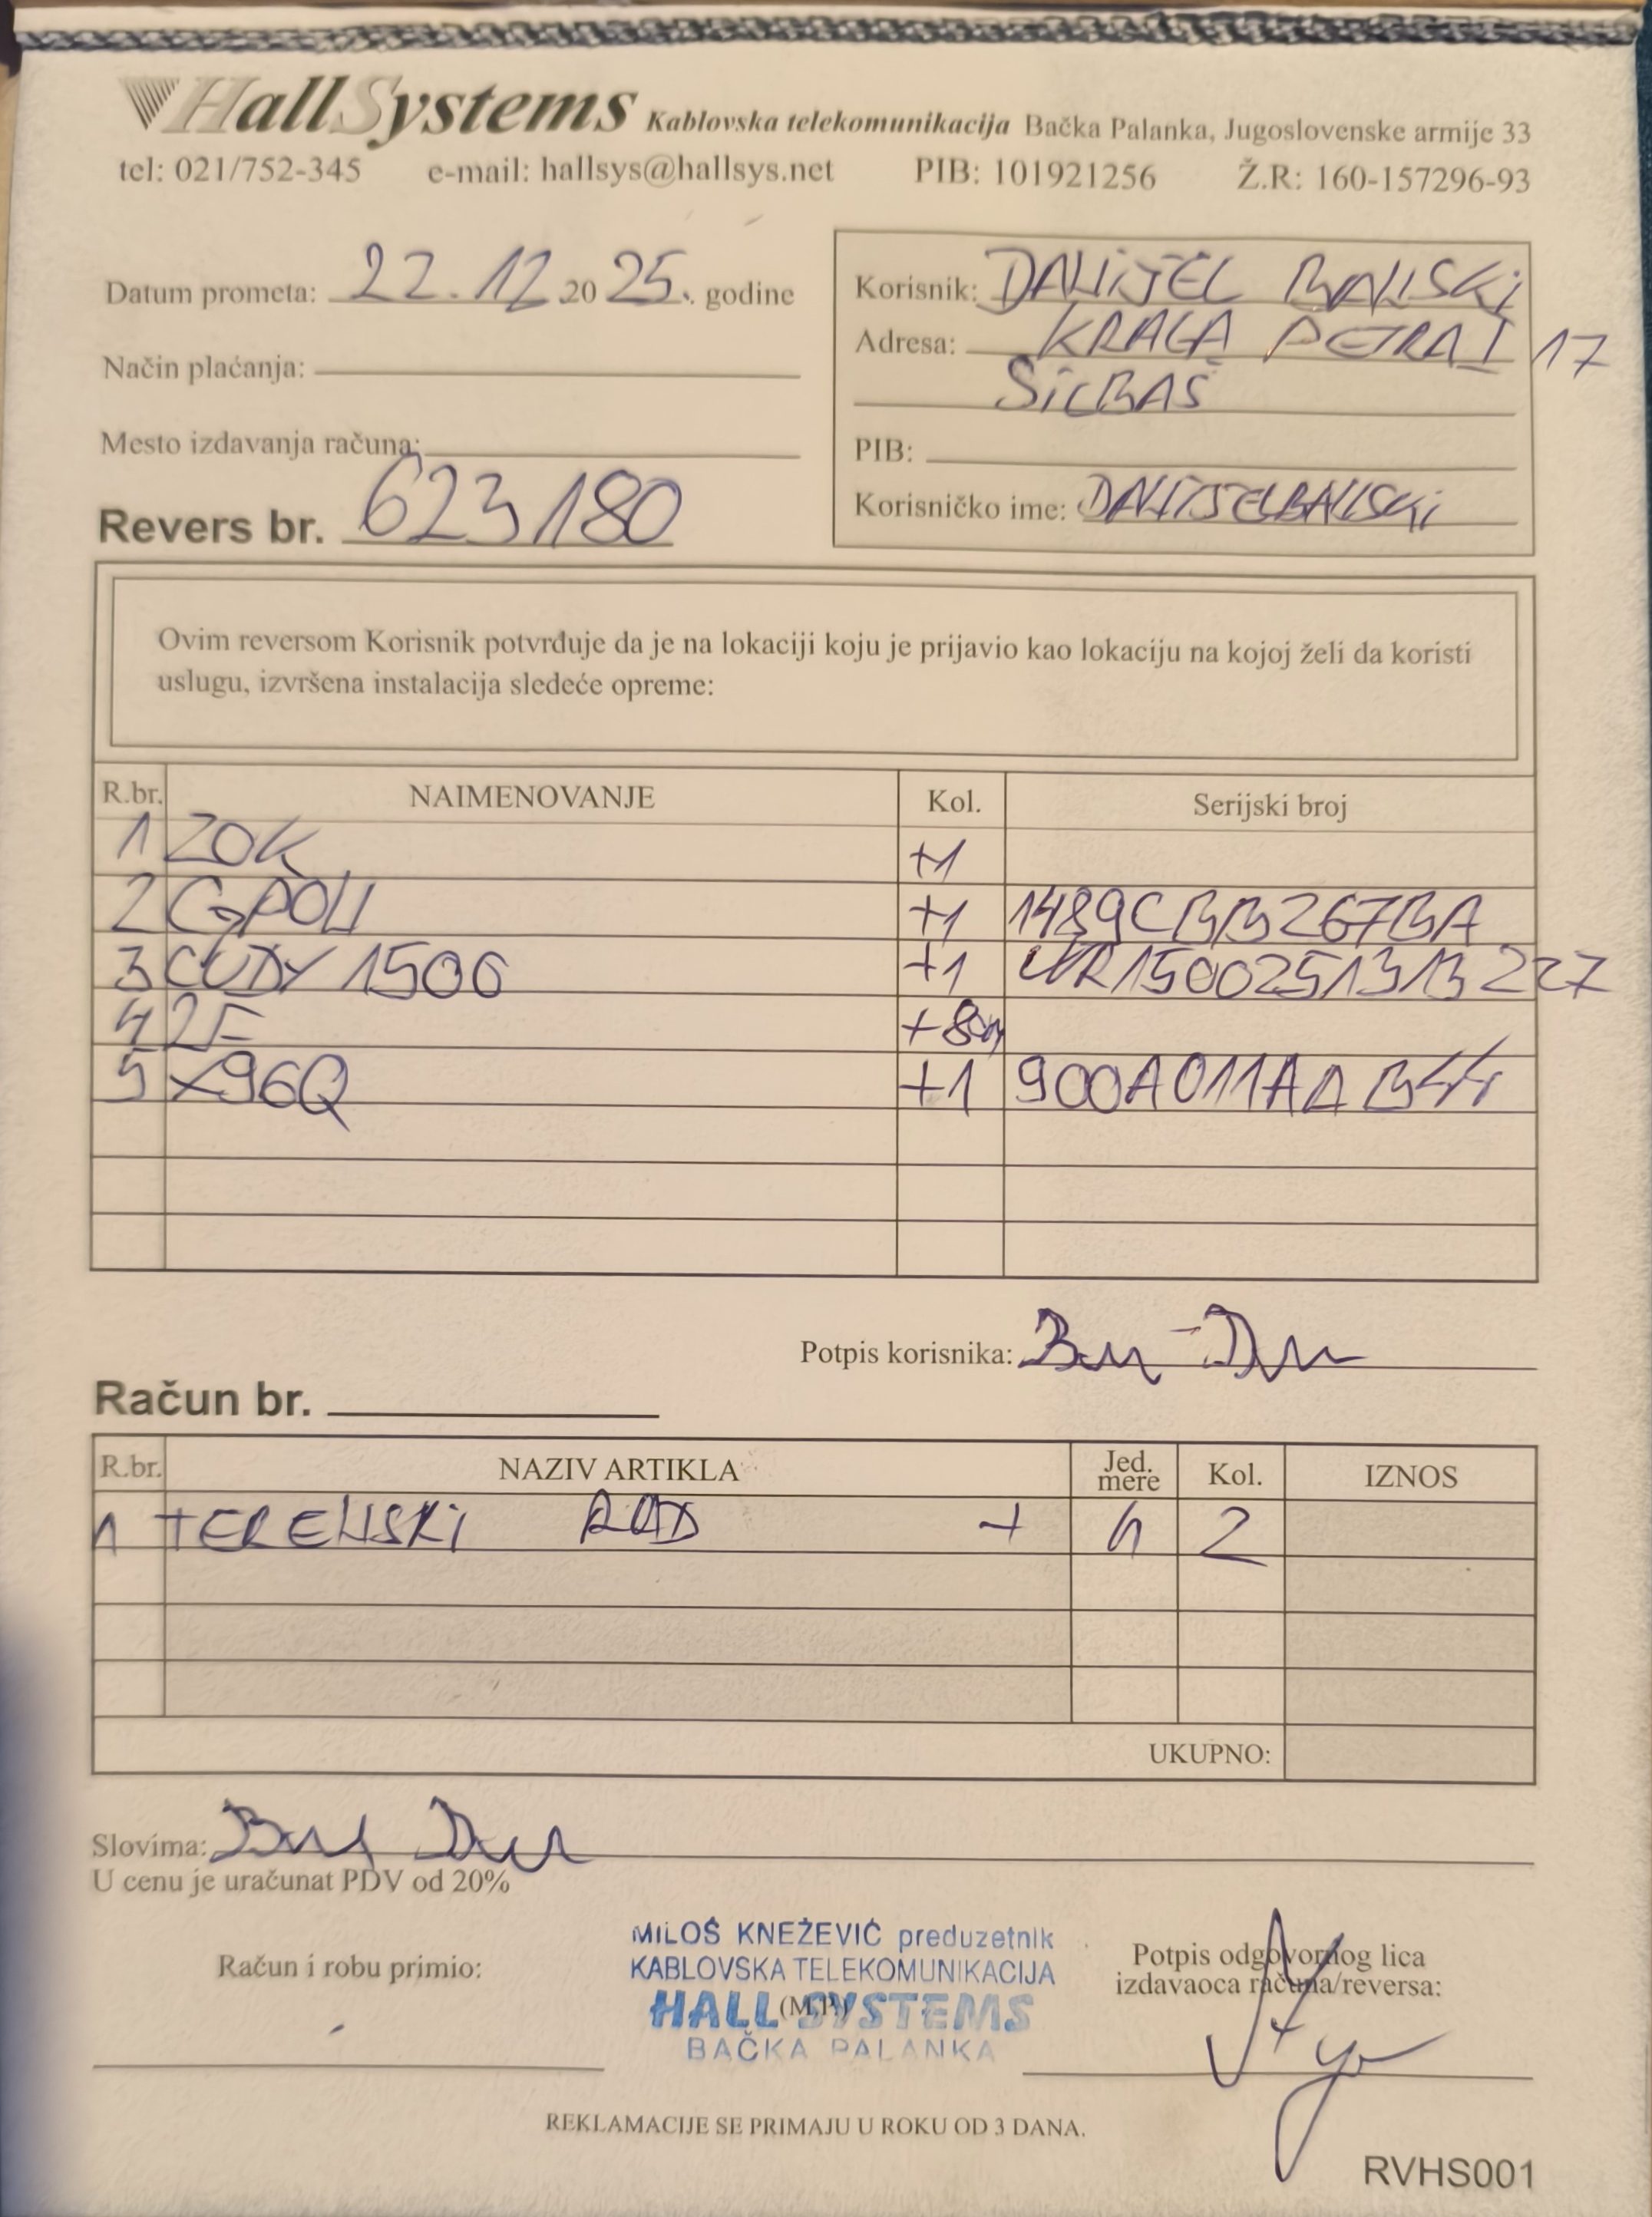 HallSystems Kablovska telekomunikacija Bačka Palanka, Jugoslovenske armije 33
tel: 021/752-345 e-mail: hallsys@hallsys.net PIB: 101921256 Ž.R: 160-157296-93
Datum prometa: 22.12.2025. godine
Način plaćanja:
Mesto izdavanja računa:
Revers br. 623180
Korisnik: DANIJEL BANSKI
Adresa: KRALA PETRA I 17
SILBAŠ
PIB:
Korisničko ime: DANIJELBANSKI
Ovim reversom Korisnik potvrđuje da je na lokaciji koju je prijavio kao lokaciju na kojoj želi da koristi
uslugu, izvršena instalacija sledeće opreme:
R.br. NAIMENOVANJE Kol. Serijski broj
1 ZOK +1
2 GPON +1 1489CBB267BA
3 CUDY 1500 +1 WR1500251313227
4 2F +80m
5 X96Q +1 900A011AAB44
Potpis korisnika:
Račun br.
R.br. NAZIV ARTIKLA Jed. mere Kol. IZNOS
1 TERENSKI RAD + h 2
UKUPNO:
Slovima:
U cenu je uračunat PDV od 20%
Račun i robu primio:
MILOŠ KNEŽEVIĆ preduzetnik
KABLOVSKA TELEKOMUNIKACIJA
HALL SYSTEMS
(M.P.)
BAČKA PALANKA
Potpis odgovornog lica
izdavaoca računa/reversa:
REKLAMACIJE SE PRIMAJU U ROKU OD 3 DANA.
RVHS001